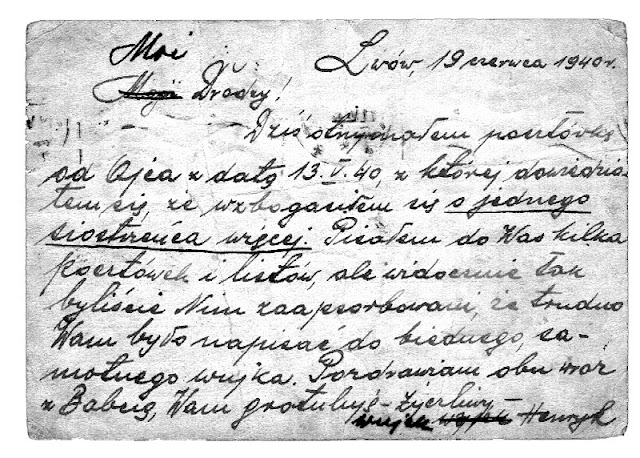 Moi
Lwów, 19 czerwca 1940 r.
Moji Drodzy!
Dziś otrzymałem pocztówkę
od Ojca z datą 13.V.40, z której dowiedzia-
łem się, że wzbogaciłem się o jednego
siostrzeńca więcej. Pisałem do Was kilka
pocztówek i listów, ale widocznie tak
byliście Nim zaapsorbowani, że trudno
Wam było napisać do biednego, sa-
motnego wujka. Pozdrawiam obu wraz
z Babcią, Wam gratuluję – Życzliwy –
wujek Henryk